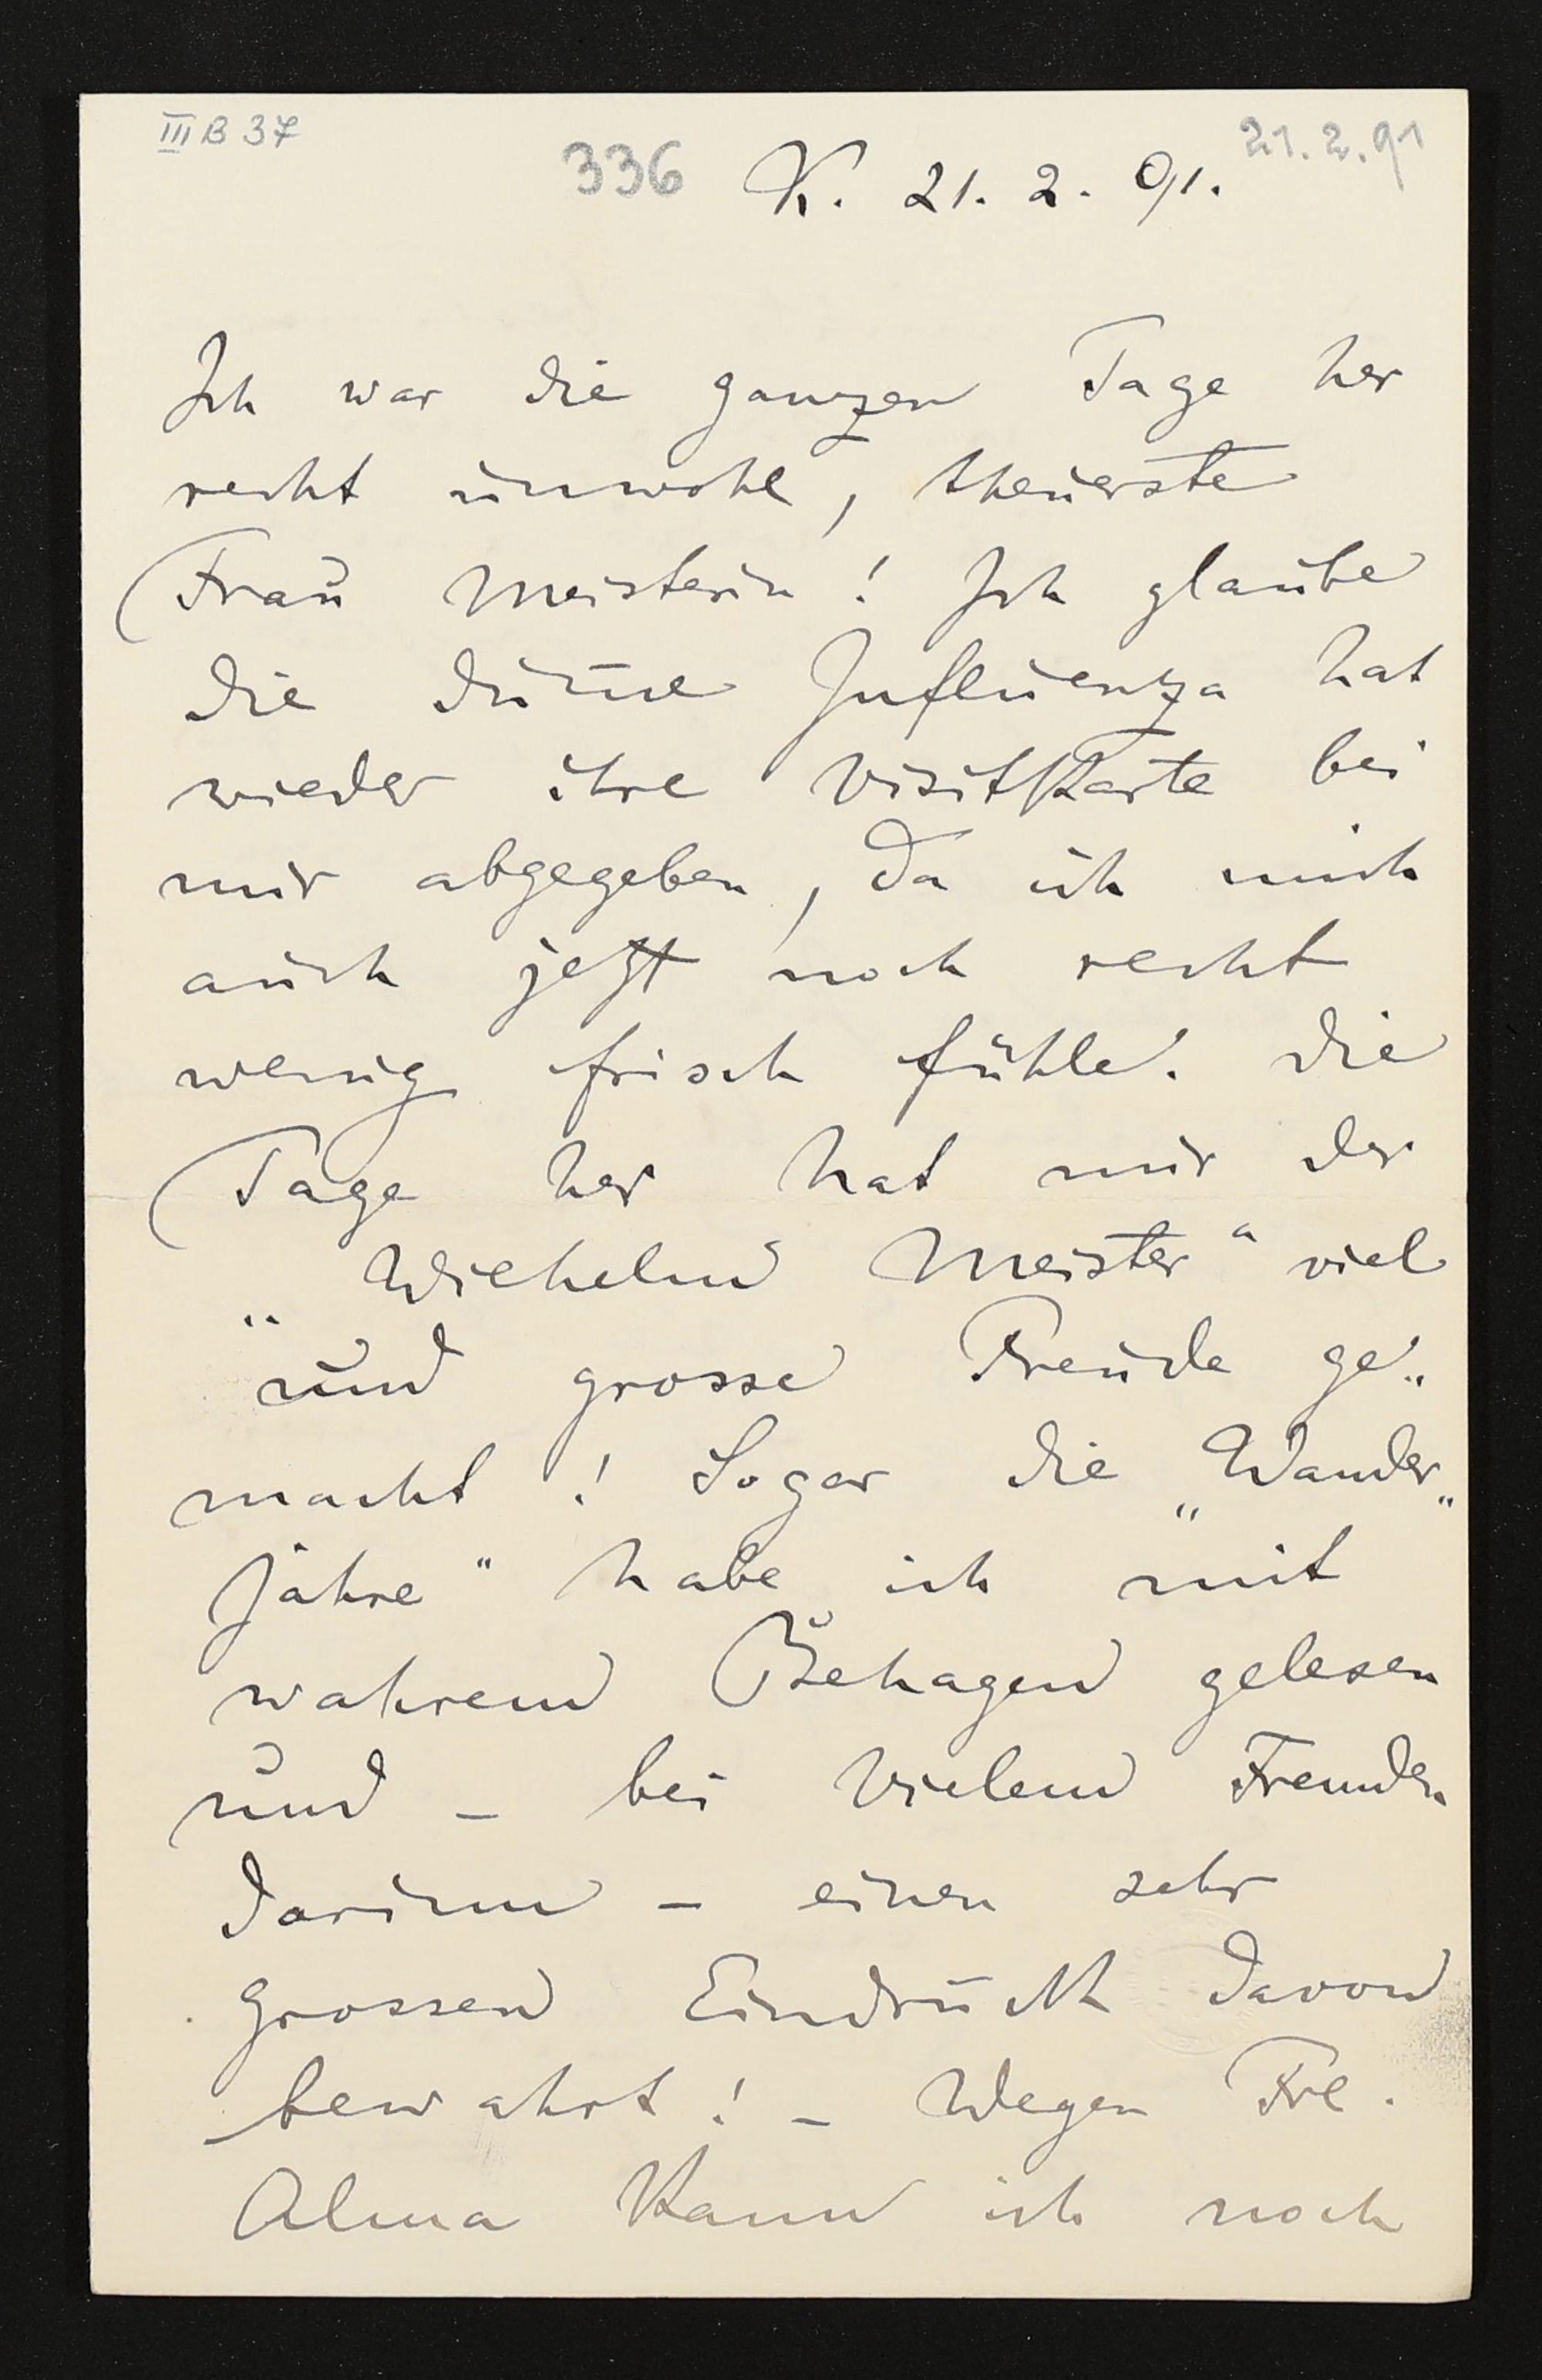 III B 37
336 K. 21. 2. 91. 21.2.91
Ich war die ganzen Tage her
recht unwohl, theuerste
Frau Meisterin! Ich glaube
die dum̄e Influenza hat
wieder ihre Visitkarte bei
mir abgegeben, da ich mich
auch jetzt noch recht
wenig frisch fühle. Die
Tage her hat mir der
„Wilhelm Meister“ viel
und grosse Freude ge„
macht! Sogar die „Wander„
jahre“ habe ich mit
wahrem Behagen gelesen
und – bei vielem Fremden
darinn – einen sehr
grossen Eindruck davon
bewahrt! – Wegen Frl.
Alma kann ich noch